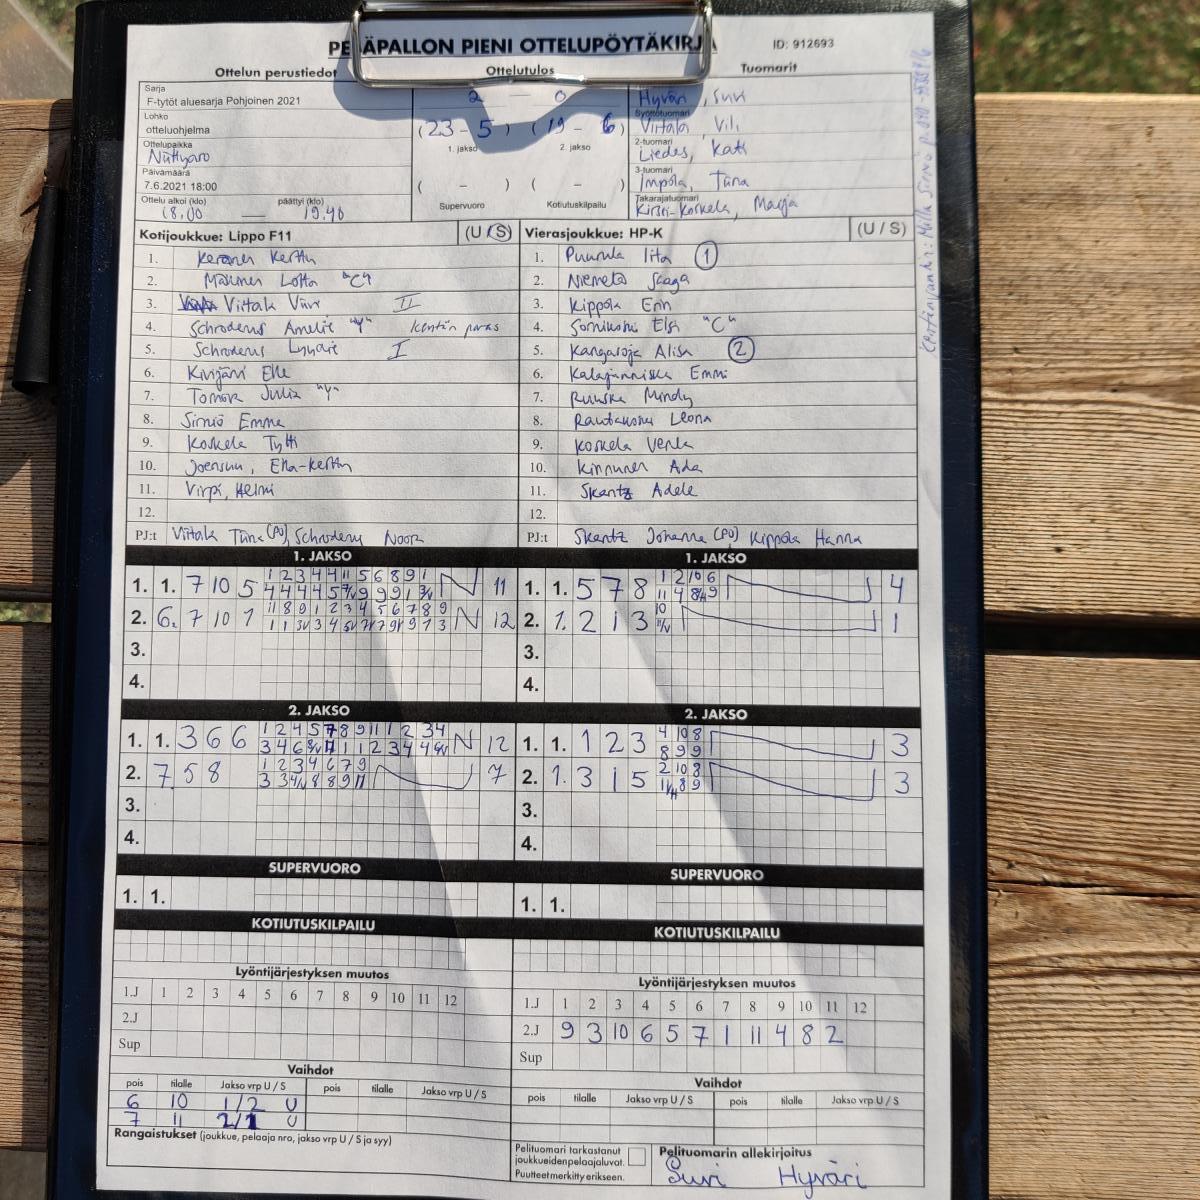 PESÄPALLON PIENI OTTELUPÖYTÄKIRJA
ID: 912693
Ottelun perustiedot
Ottelutulos
Tuomarit
Sarja
F-tytöt aluesarja Pohjoinen 2021
Lohko
otteluohjelma
Ottelupaikka
Päivämäärä
7.6.2021 18:00
Ottelu alkoi (klo) päättyi (klo)
18.00 — 19.40
2 — 0
(23 - 5) (19 - 6)
1. jakso 2. jakso
( - ) ( - )
Supervuoro Kotiutuskilpailu
Hyväri, Suvi
Syöttötuomari
Viitala, Vili
2-tuomari
Liedes, Kati
3-tuomari
Impola, Tiina
Takarajatuomari
Kotijoukkue: Lippo F11 (U / S)
1. Keränen Kerttu
2. Lotta "C"
3. Viitala Viivi II
4. Schroderus Amelie "Y" kentän paras
5. Schroderus I
6. Kivijärvi Elle
7. Julia "Y"
8. Sirniö Emma
9. Koskela Tytti
10. Joensuu, Ella-Kerttu
11. Virpi, Helmi
12.
PJ:t Viitala Tiina (PV), Schroderus Noora
Vierasjoukkue: HP-K (U / S)
1. Puurula Iita 1
2. Niemelä Saaga
3. Kippola Erin
4. Elsi "C"
5. Kangasoja Alisa 2
6. Emmi
7. Mindy
8. Leona
9. Koskela Venla
10. Kinnunen Ada
11. Skantz Adele
12.
PJ:t Skantz Johanna (PV) Kippola Hanna
1. JAKSO
1. 1. 7 10 5
1 2 3 4 4 11 5 6 8 9 1
N 11
2. 6. 7 10 1
11 8 9 1 2 3 4 5 6 7 8 9
N 12
3.
4.
1. JAKSO
1. 1. 5 7 8
1 2 10 6
4
2. 1. 2 1 3
10
1
3.
4.
2. JAKSO
1. 1. 3 6 6
1 2 4 5 7 8 9 11 1 2 3 4
N 12
2. 7. 5 8
1 2 3 4 6 7 9
7
3.
4.
2. JAKSO
1. 1. 1 2 3
4 10 8
8 9 9
3
2. 1. 3 1 5
2 10 8
3
3.
4.
SUPERVUORO
1. 1.
SUPERVUORO
1. 1.
KOTIUTUSKILPAILU
KOTIUTUSKILPAILU
Lyöntijärjestyksen muutos
1.J 1 2 3 4 5 6 7 8 9 10 11 12
2.J
Sup
Lyöntijärjestyksen muutos
1.J 1 2 3 4 5 6 7 8 9 10 11 12
2.J 9 3 10 6 5 7 1 11 4 8 2
Sup
Vaihdot
pois tilalle Jakso vrp U / S pois tilalle Jakso vrp U / S
6 10 1/2 U
7 11 2/1 U
Rangaistukset (joukkue, pelaaja nro, jakso vrp U / S ja syy)
Vaihdot
pois tilalle Jakso vrp U / S pois tilalle Jakso vrp U / S
Pelituomari tarkastanut
joukkueiden pelaajaluvat.
Puutteet merkitty erikseen.
Pelituomarin allekirjoitus
Suvi Hyväri